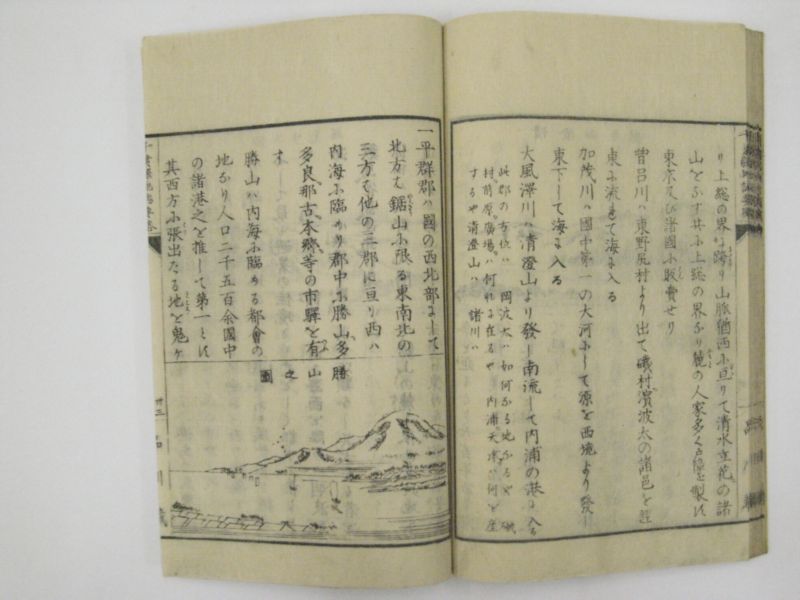 り上総の界に跨り山脈猶西に亘りて清水立花の諸
山となす共に上総の界なり麓の人家多く戸障を製して
東京及び諸國に販賣せり
曽呂川ハ東野尻村より出て磯村濱波太の諸邑を経
東に流きて海に入る
加茂川ハ國中第一の大河にして源を西境より發し
東下して海に入る
大風澤川ハ清澄山より發し南流して内浦の港に入る
此郡の方位ハ 岡波太ハ如何なる地なるや 磯
村前原廣場ハ何れに在るや 内浦天津ハ何を産
するや 清澄山ハ 諸川ハ
一平群郡ハ國の西北部にして
北方ハ鋸山に限る東南北の
三方ハ他の三郡に亘り西ハ
内海に臨めり郡中に勝山多
多良那古本郷等の市驛を有
す
勝山ハ内海に臨める都會の
地なり人口二千五百余國中
の諸港之を推して第一とす
其西方に張出たる地を鬼ヶ
勝山之圖
廿三